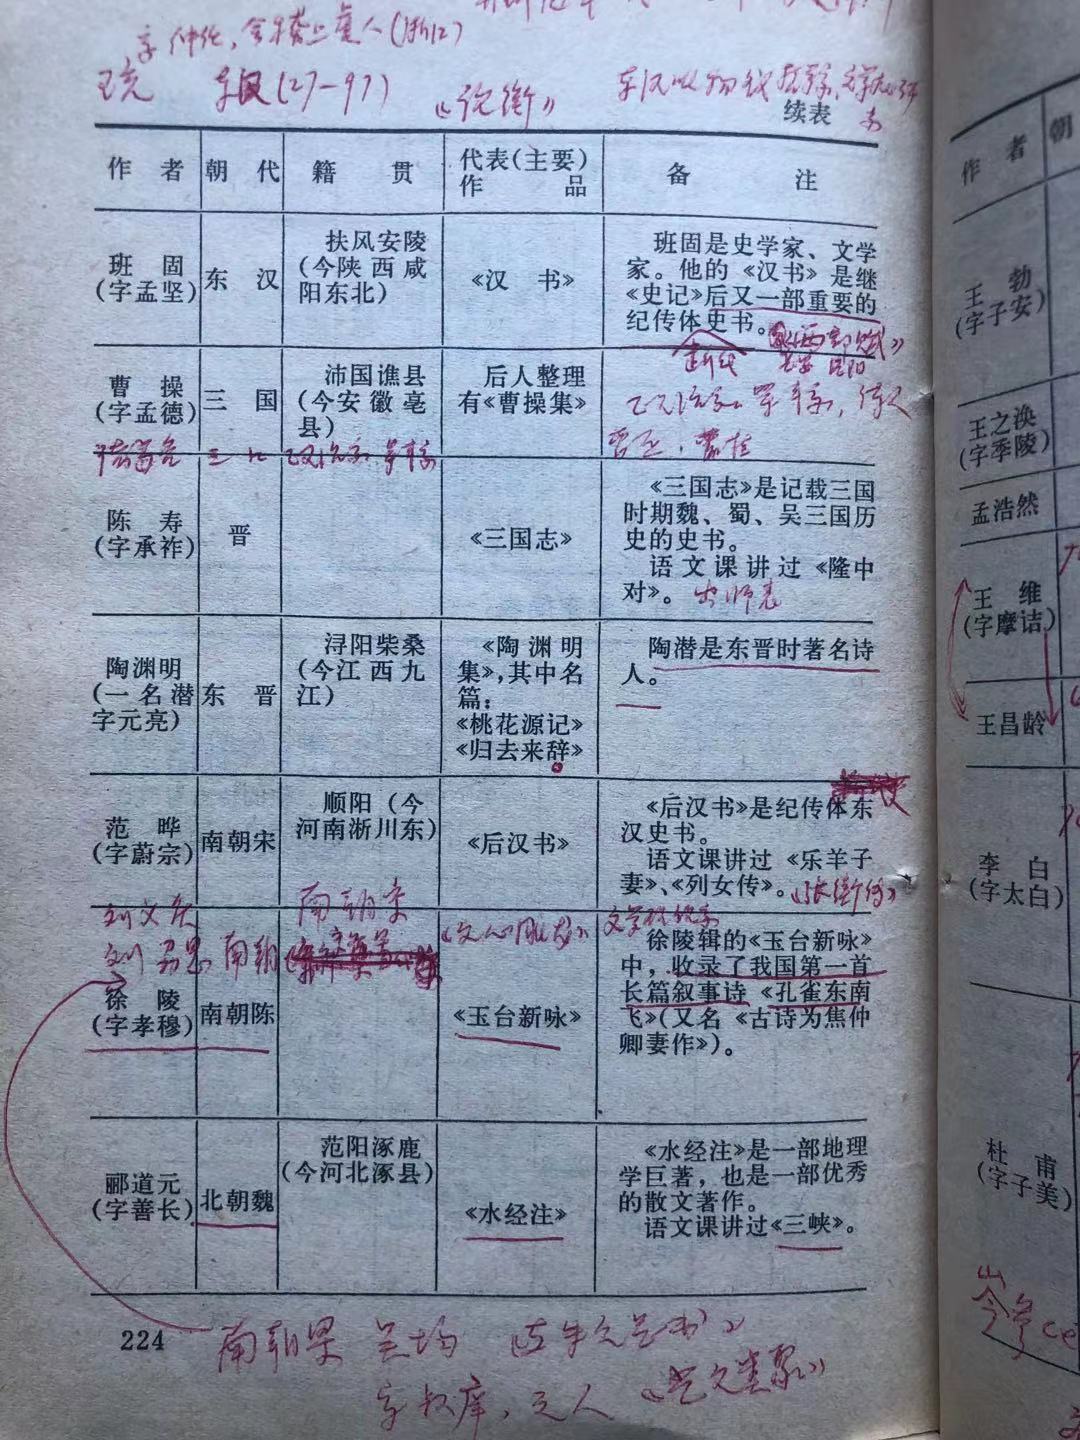 字仲任,会稽上虞人(浙江)
王充 东汉(27—97) 《论衡》
续表
作者 朝代 籍贯 代表(主要)作品 备注
班固
(字孟坚)
东汉
扶风安陵
(今陕西咸
阳东北)
《汉书》
班固是史学家、文学
家。他的《汉书》是继
《史记》后又一部重要的
纪传体史书。
断代
《西都赋》
曹操
(字孟德)
三国
沛国谯县
(今安徽亳
县)
后人整理
有《曹操集》
政治家、军事家,诗人
曹丕,曹植
诸葛亮 三国 政治家 军事家
陈寿
(字承祚)
晋
《三国志》
《三国志》是记载三国
时期魏、蜀、吴三国历
史的史书。
语文课讲过《隆中
对》。出师表
陶渊明
(一名潜
字元亮)
东晋
浔阳柴桑
(今江西九
江)
《陶渊明
集》,其中名
篇:
《桃花源记》
《归去来辞》
陶潜是东晋时著名诗
人。
范晔
(字蔚宗)
南朝宋
顺阳(今
河南淅川东)
《后汉书》
《后汉书》是纪传体东
汉史书。
语文课讲过《乐羊子
妻》、《列女传》。《张衡传》
刘义庆 南朝宋
刘勰 南朝 《文心雕龙》
徐陵
(字孝穆)
南朝陈
《玉台新咏》
徐陵辑的《玉台新咏》
中,收录了我国第一首
长篇叙事诗《孔雀东南
飞》(又名《古诗为焦仲
卿妻作》)。
郦道元
(字善长)
北朝魏
范阳涿鹿
(今河北涿县)
《水经注》
《水经注》是一部地理
学巨著,也是一部优秀
的散文著作。
语文课讲过《三峡》。
224
南朝梁 吴均 《与朱元思书》
字叔庠, 《艺文类聚》
作者 朝
王勃
(字子安)
王之涣
(字季陵)
孟浩然
王维
(字摩诘)
王昌龄
李白
(字太白)
杜甫
(字子美)
岑参